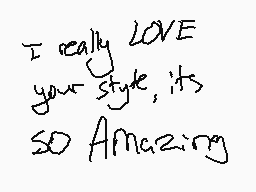 I really LOVE
your style, its
SO Amazing